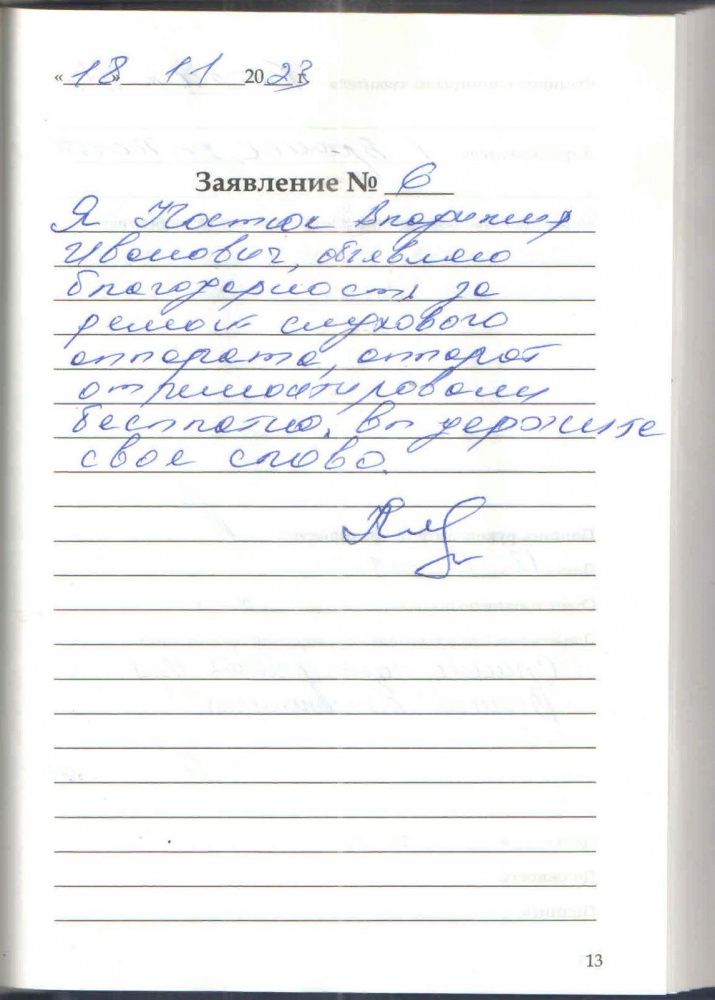 «18» 11 2023 г.
Заявление № 6
Я Костюк Владимир
Иванович, объявляю
благодарность за
ремонт слухового
аппарата, аппарат
отремонтировали
бесплатно. Вы держите
свое слово.
13